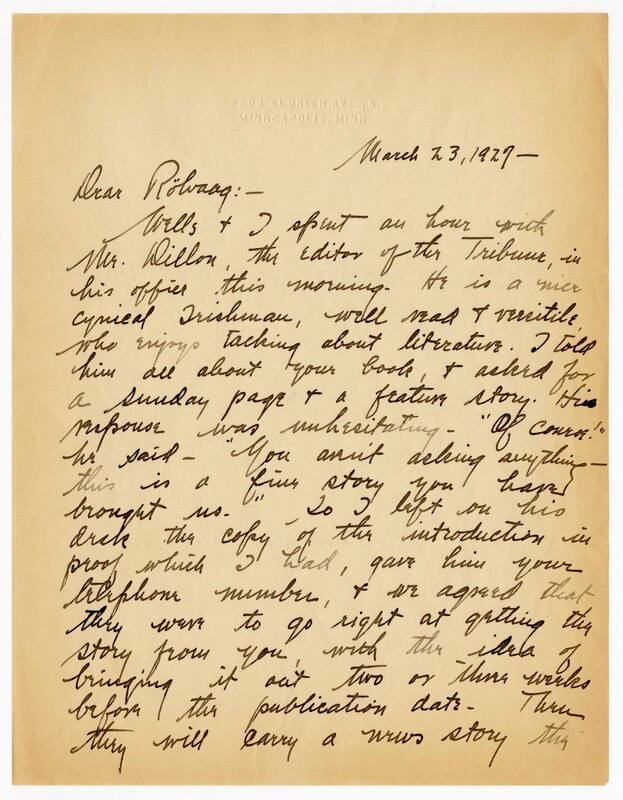 2208 ALDRICH AVE., S.
MINNEAPOLIS, MINN.
March 23, 1927—
Dear Rölvaag:—
Wells & I spent an hour with
Mr. Dillon, the editor of the Tribune, in
his office this morning. He is a nice
cynical Irishman, well read & versitile,
who enjoys talking about literature. I told
him all about your book, & asked for
a Sunday page & a feature story. His
response was unhesitating. "Of course!"
he said — "You ain't asking anything—
this is a fine story you have
brought us." So I left on his
desk the copy of the introduction in
proof which I had, gave him your
telephone number, & we agreed that
they were to go right at getting the
story from you, with the idea of
bringing it out two or three weeks
before the publication date. Then
they will carry a news story the